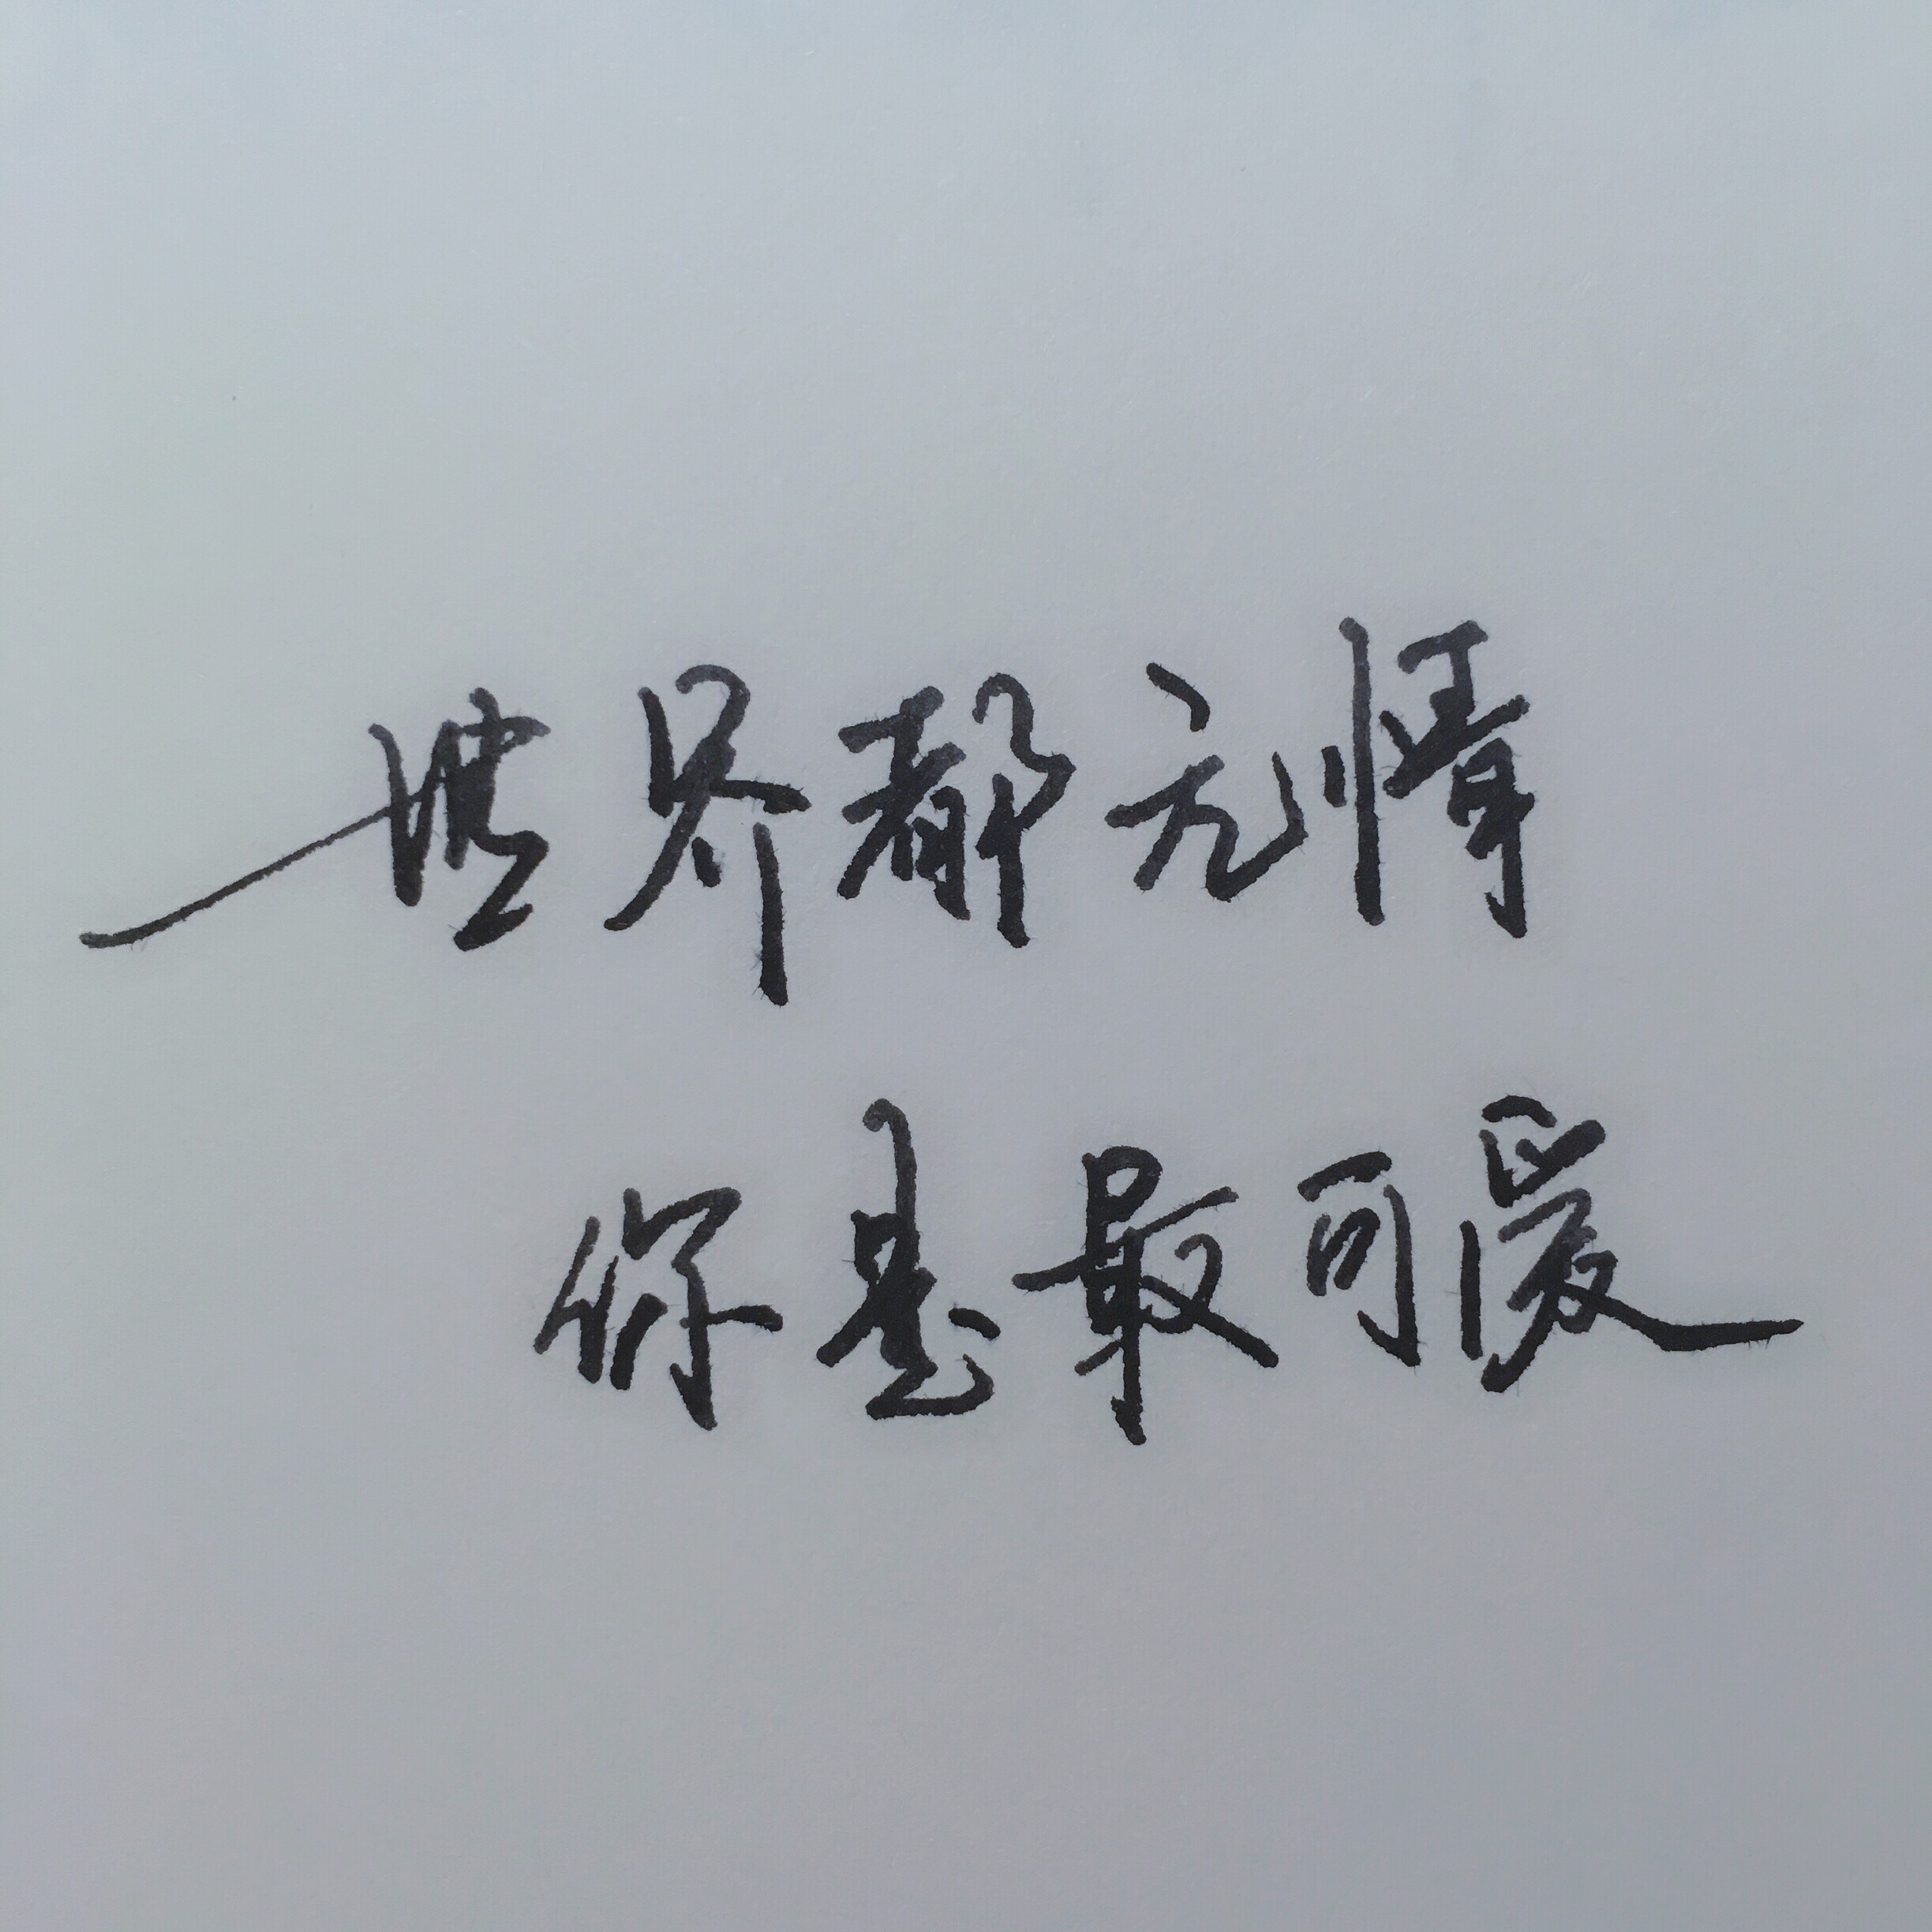 世界都无情
你是最可爱